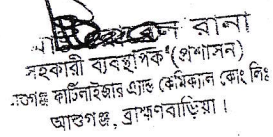 রানা
সহকারী ব্যবস্থাপক (প্রশাসন)
ফার্টিলাইজার এ্যান্ড কেমিক্যাল কোং লিঃ
আশুগঞ্জ, ব্রাহ্মণবাড়িয়া।